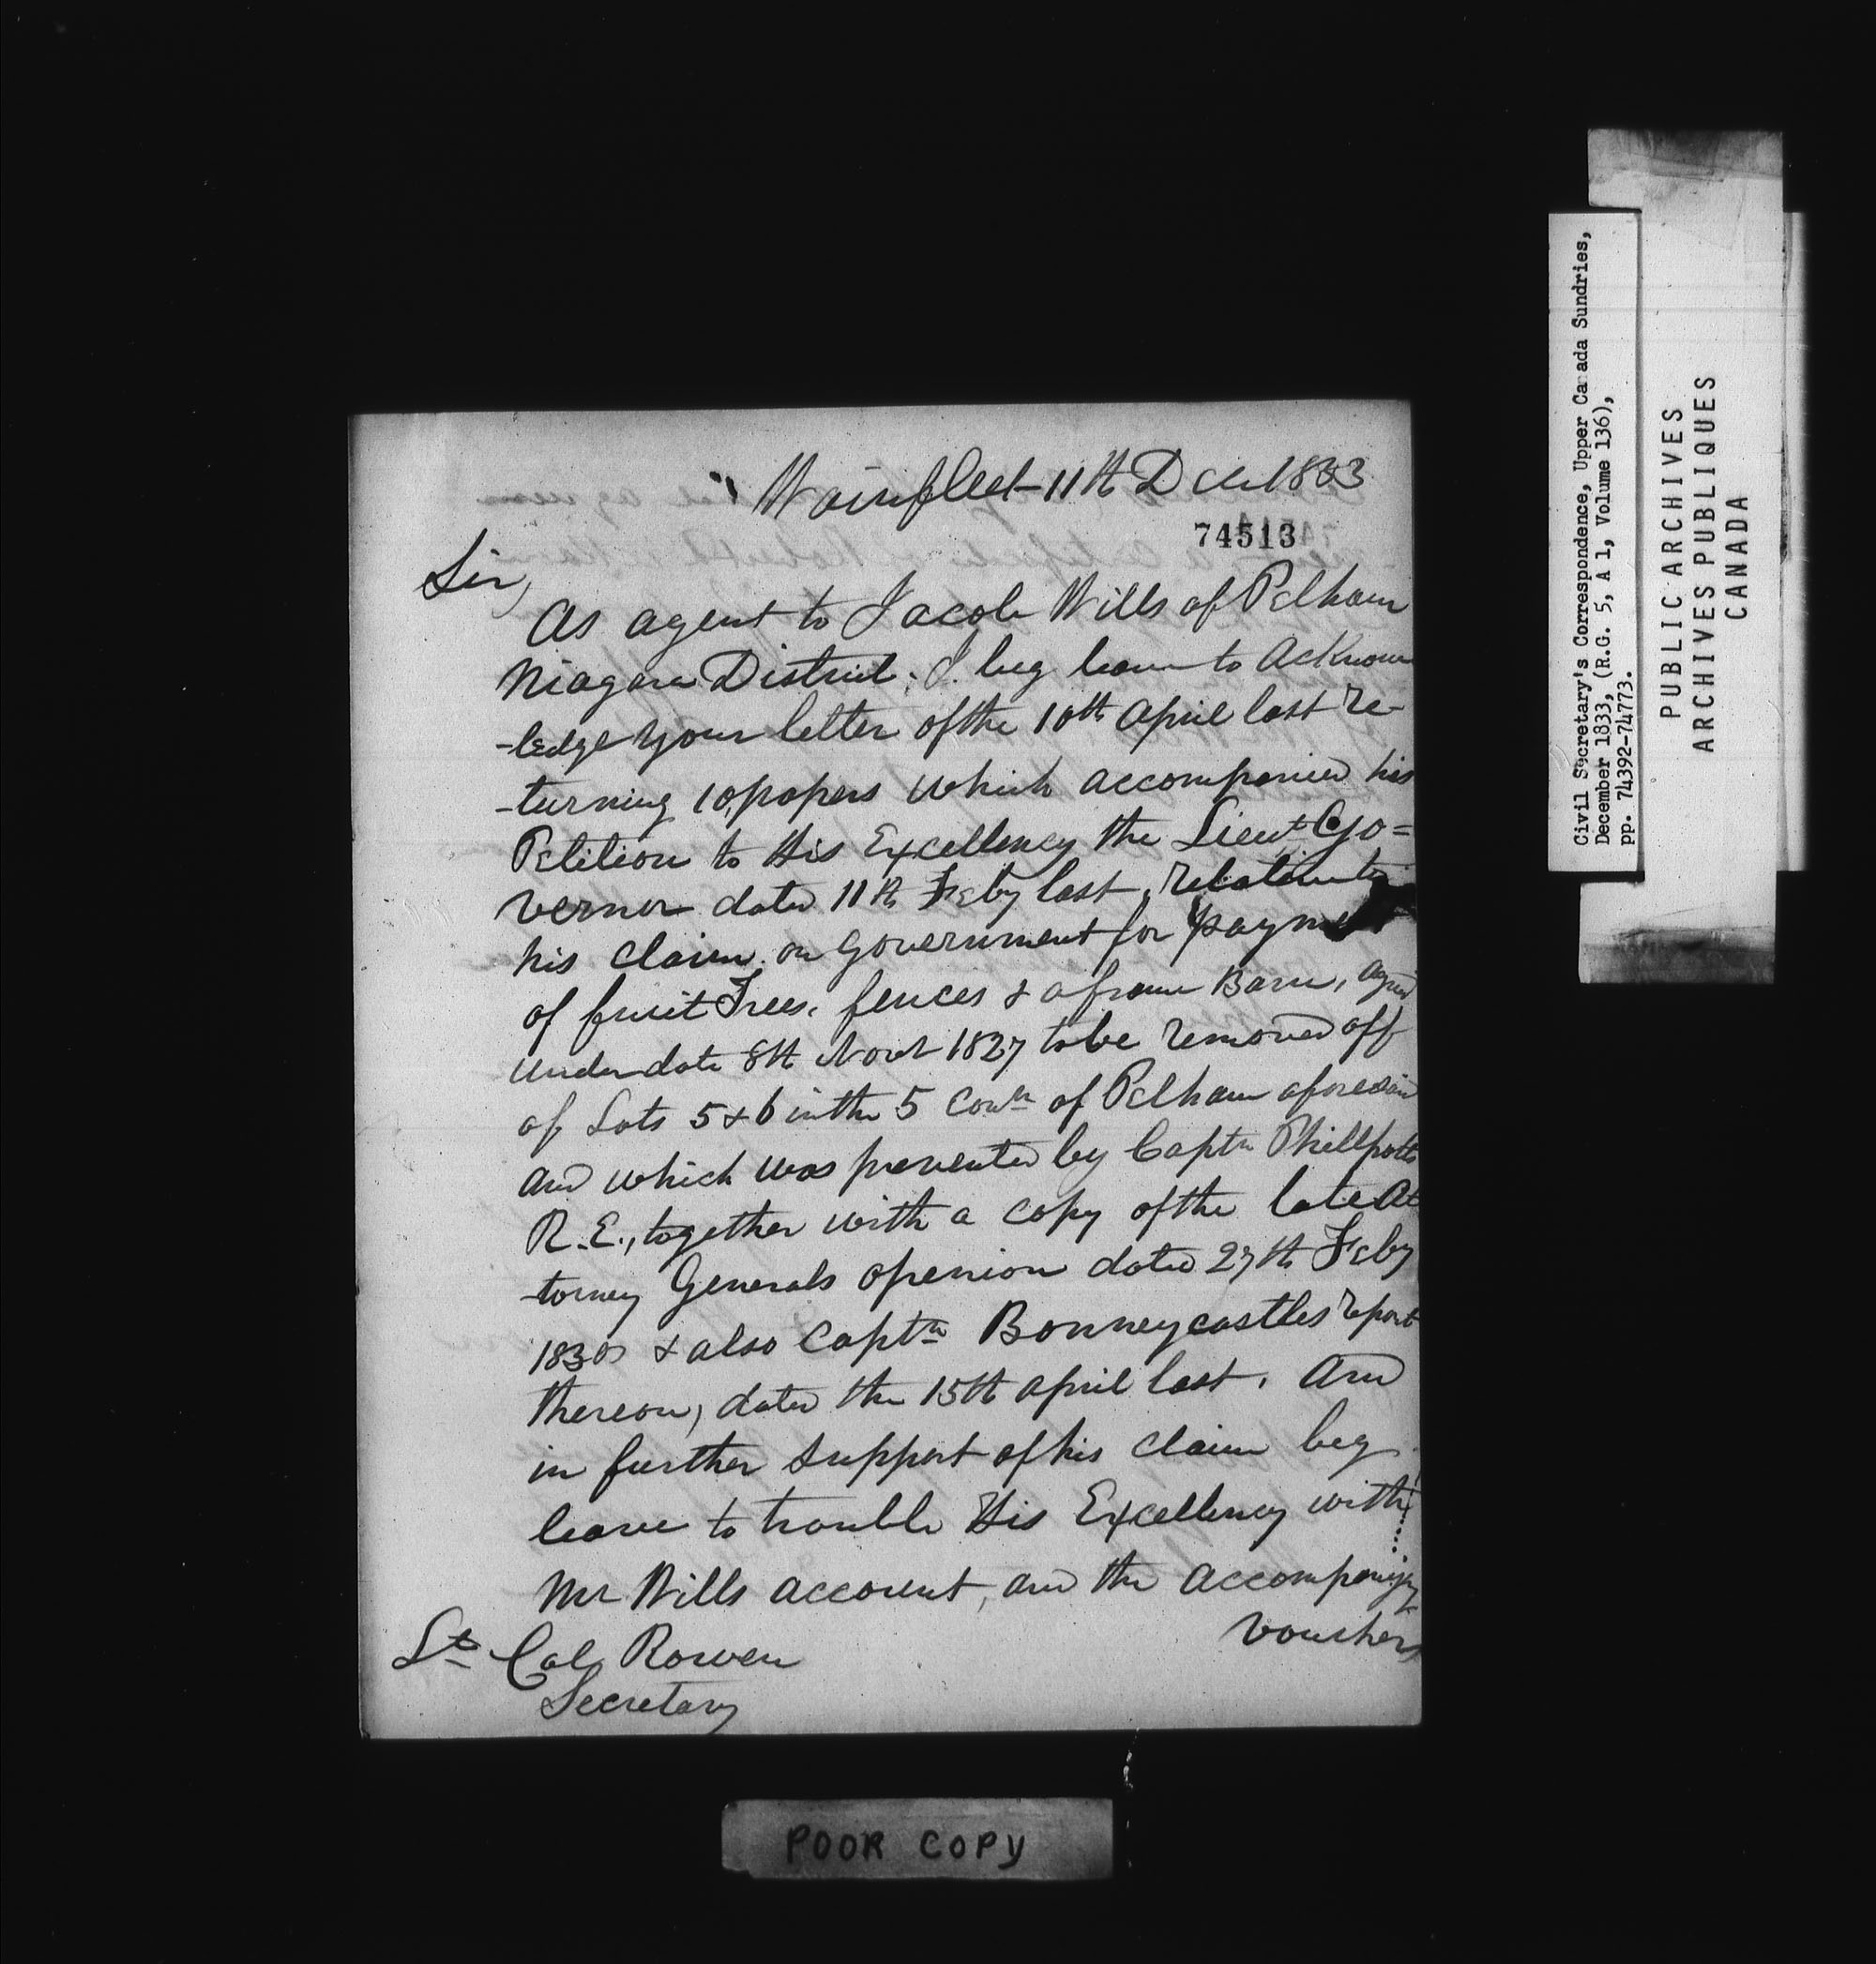 Wainfleet 11th Decr 1833
74513
Sir,
As agent to Jacob Wills of Pelham
Niagara District. I beg leave to Acknow
-ledge your letter of the 10th April last re-
-turning 10, papers which accompanied his
Petition to His Excellency the Lieut Go=
vernor dated 11th Feby last, relative to
his claim on Government for payment
of fruit Trees, fences & a frame Barn, agreed
under date 8th Novr 1827 to be removed off
of Lots 5 & 6 in the 5 Conn of Pelham aforesaid
and which was prevented by Captn Phillpotts
R.E., together with a copy of the late At
-torney Generals openion dated 27th Feby
1830 & also Captn Bonneycastles report
thereon, dated the 15th April last. And
in further support of his claim beg
leave to trouble His Excellency with
Mr Wills account, and the accompanying
vouchers
Lt Col Rowen
Secretary
POOR COPY
Civil Secretary's Correspondence, Upper Canada Sundries,
December 1833, (R.G. 5, A 1, Volume 136),
pp. 74392-74773.
PUBLIC ARCHIVES
ARCHIVES PUBLIQUES
CANADA